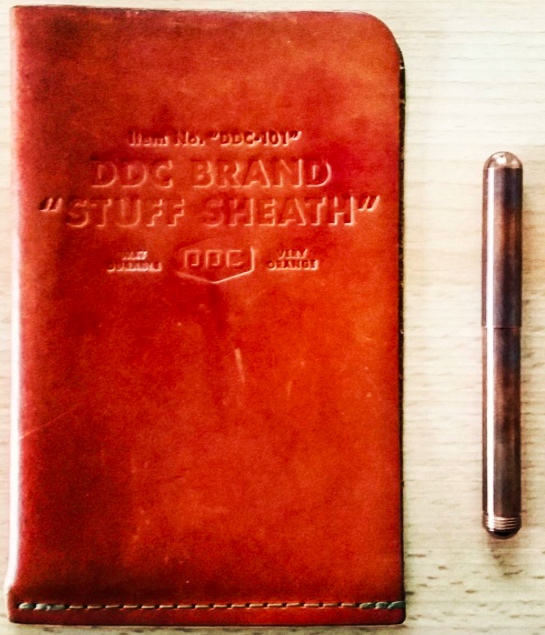 Item No. "DDC-101"
DDC BRAND
"STUFF SHEATH"
WAY DURABLE DDC VERY ORANGE